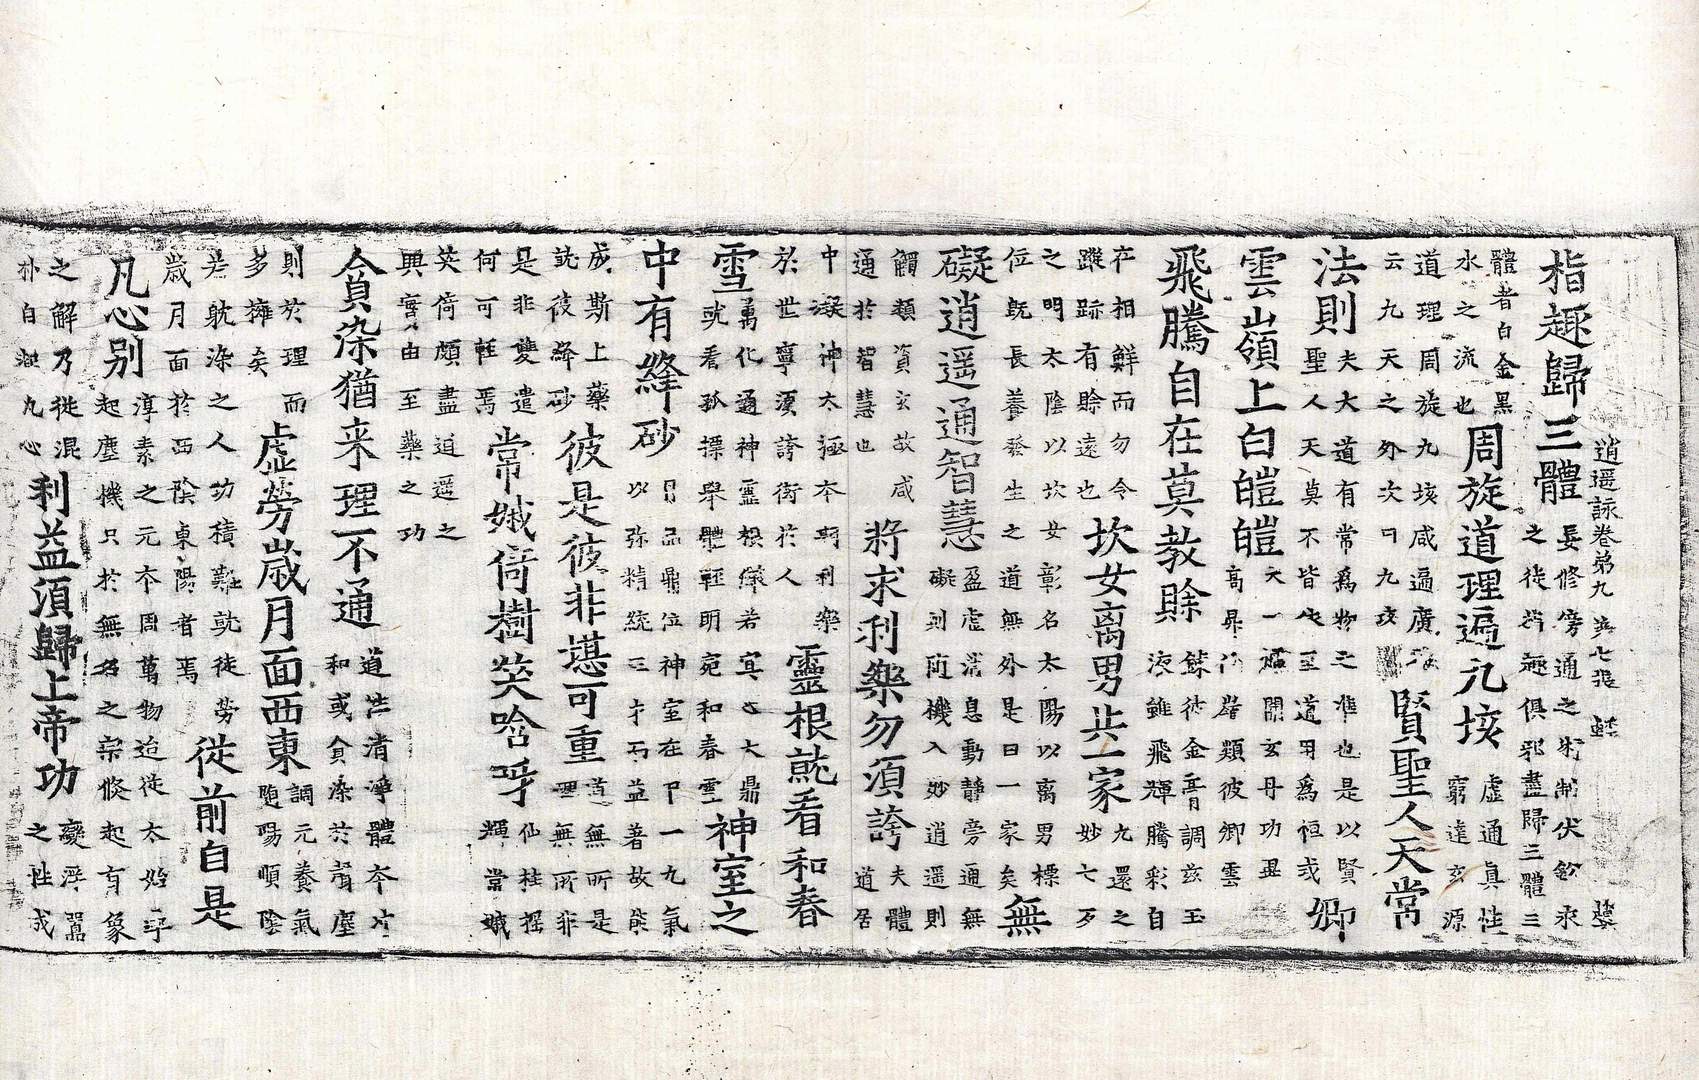 逍遥詠卷第九 第七張
指趣歸三體
妄修傍通之术制伏欲求
之徒皆趣俱邪盡歸三體三
體者白金黑
水之流也
周旋道理遍九垓
虛通真性
窮達玄源
道理周旋九垓咸遍廣
云九天之外次曰九垓
賢聖人天常
法則
夫大道有常為物之准也是以賢
聖人天莫不皆生至道用為恒式
卿
雲嶺上白皚皚
大一爐開玄丹功畢
高昇辟類彼卿雲
飛騰自在莫教賒
錬就金膏調兹玉
液雖飛輝騰彩自
在相鮮而勿令
蹤跡有賒遠也
坎女离男共一家
九還之
妙七歹
之明太陰以坎女彰名太陽以离男標
位旣長養發生之道無外是曰一家矣
無
礙逍遥通智慧
盈虛消息動靜旁通無
礙到随機入妙逍遥則
觸類資玄故咸
通於智慧也
將求利樂勿須誇
夫體
道居
中凝神太極本期利樂
於世寧須誇衒於人
靈根就看和春
雪
萬化通神靈根條若宜大鼎
就看孤標舉體輕明宛和春雪
神室之
中有絳砂
品鼎位神室在中一九氣
以弥精統三才而益著故能
成斯上藥
就彼絳砂
彼是彼非堪可重
道無所是
理無所非
是非雙遣
何可輕焉
常娥倚樹笑唅呀
仙桂揺
輝常娥
笑倚頗盡逍遥之
興寧由至藥之功
貪染猶来理不通
道性清淨體本冲
和或貪染於囂塵
則於理而
多擁矣
虛勞歲月面西東
調元養氣
随陽順陰
若躭染之人功積難就徒勞
歲月面於西陰東陽者焉
從前自是
凡心别
淳素之元本周萬物迨從太始乎
起塵機只於無名之宗倏起有象
之解乃從混
朴自挻凡心
利益須歸上帝功
變浮囂
之性成